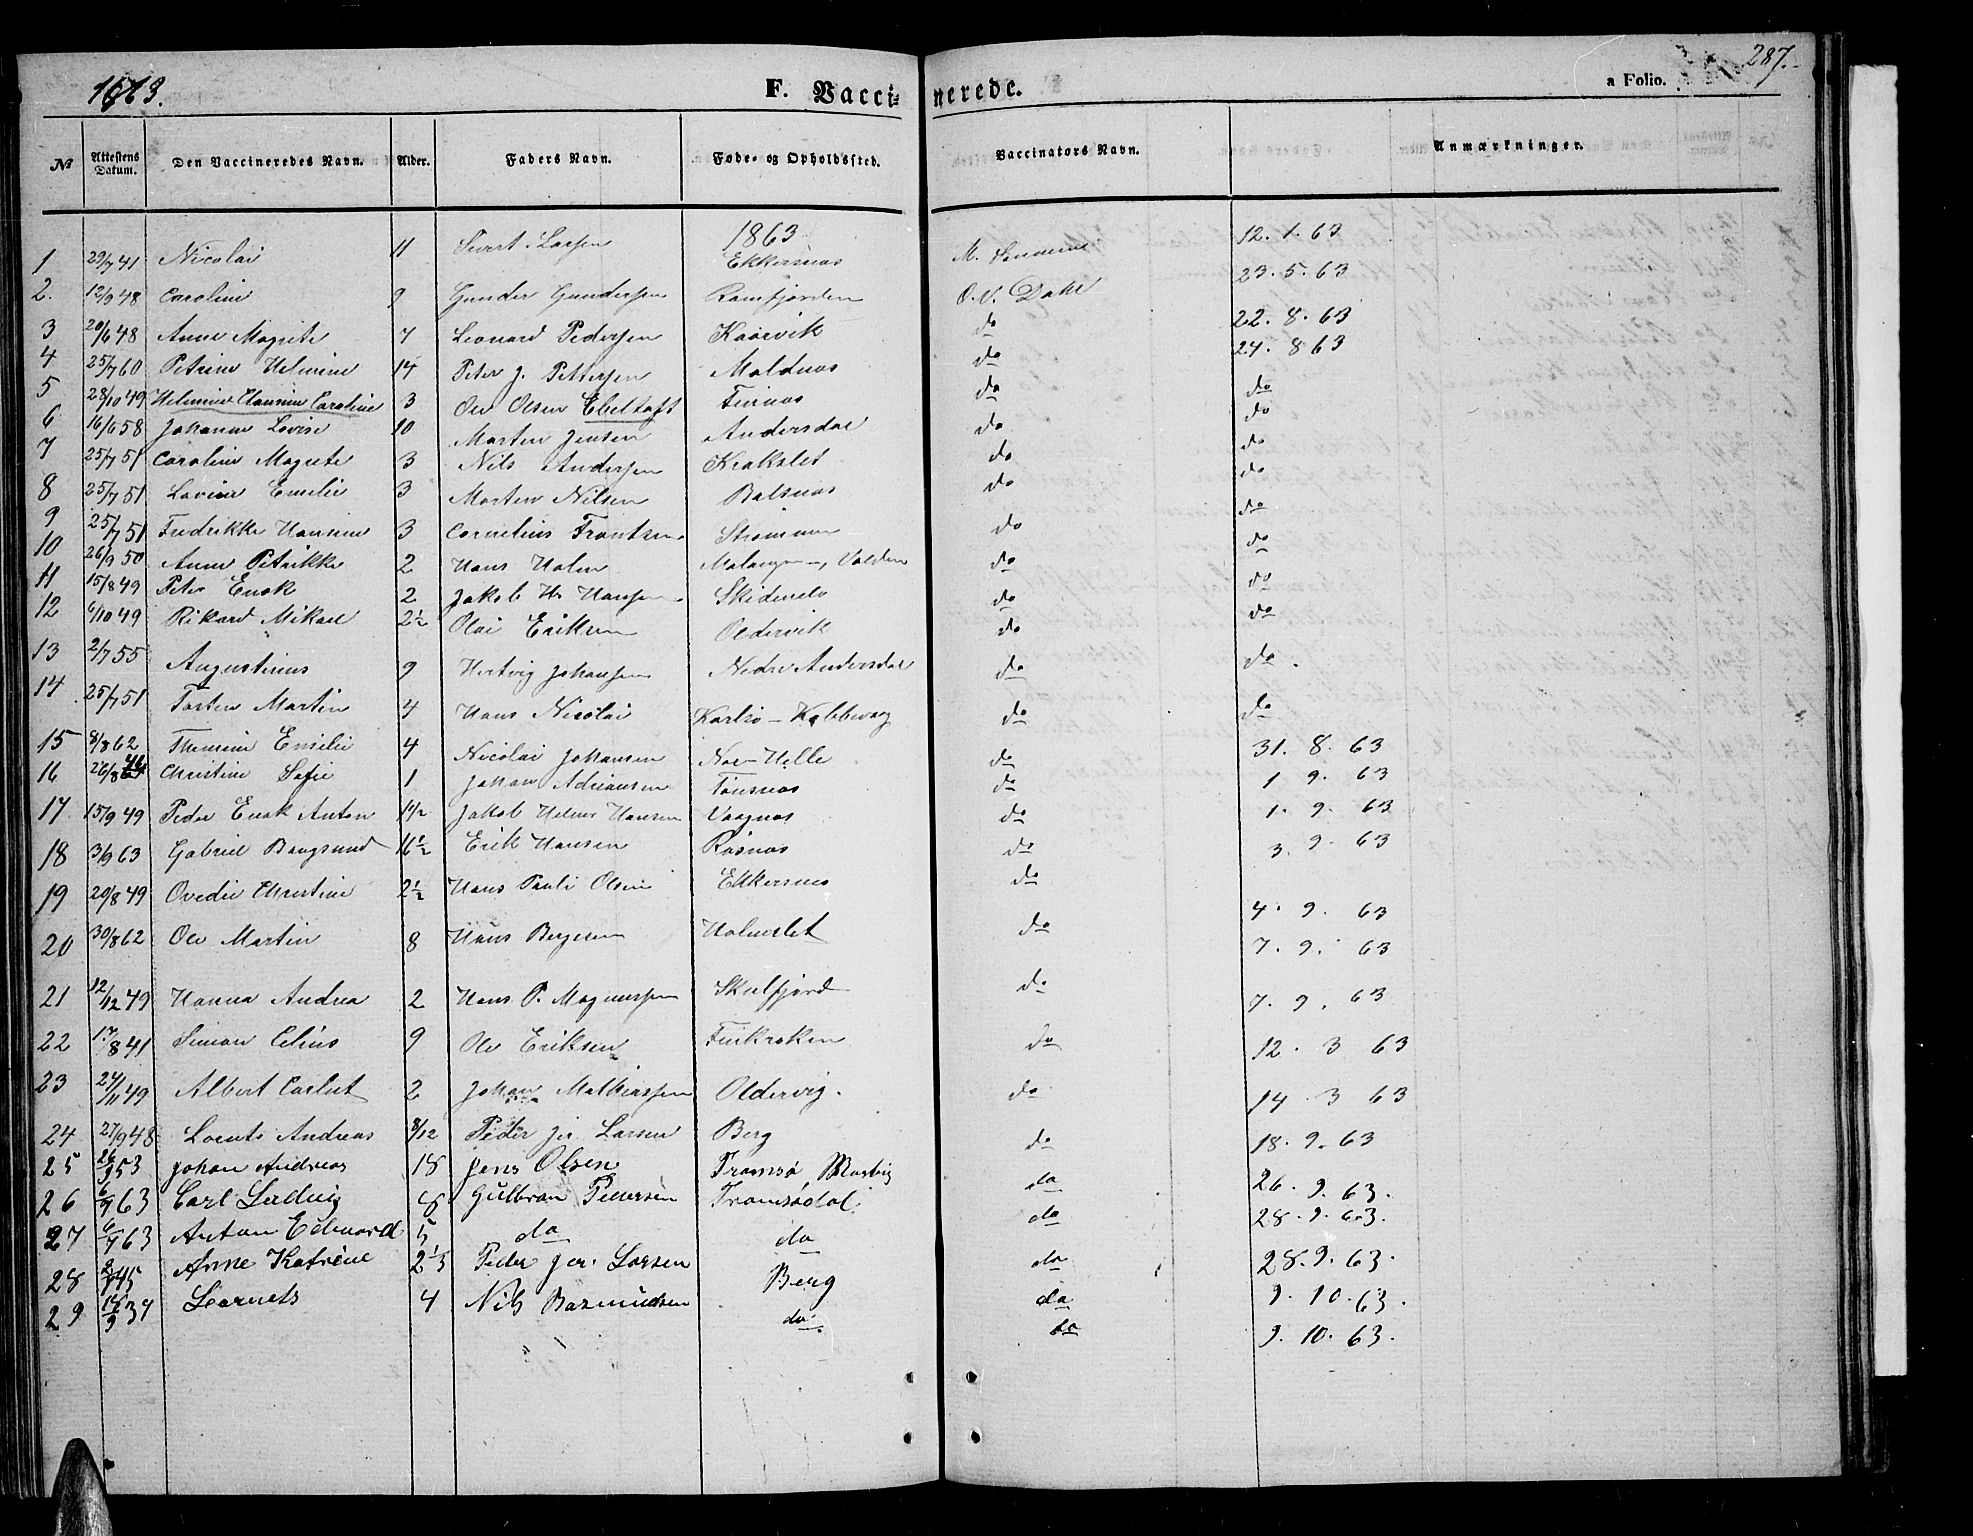 1863. F. Vaccinerede. a Folio. 287.
№ Attestens Datum. Den Vaccineredes Navn. Alder. Faders Navn. Føde- og Opholdssted. Vaccinators Navn. Anmærkninger.
1863
1 29/7 41 Nicolai 11 Sivert Larsen Ekkersnæs M. 12. 1. 63
2. 12/9 48 Caroline 9 Gunder Gundersen Ramfjorden O. V. Dahl 23. 5. 63
3 20/6 48 Anne Magrete 7 Leonard Pedersen Kaarvik do 22. 8. 63
4 25/7 60 Petrine Helmine 14 Peter J. Pettersen Maldnæs do 24. 8 63
5 28/10 49 Helmine Hansine Caroline 3 Ole Olsen Ebeltoft Finnæs do do
6 16/6 58 Johanne Lovise 10 Morten Jensen Andersdal do do
7 25/7 51 Caroline Magrete 3 Nils Andersen Krokslet do do
8 25/7 51 Lavine Emilie 3 Morten Nilsen Balsnæs do do
9 25/7 51 Fredrikke Hansine 3 Cornelius Frantsen Strømmen do do
10 26/9 50 Anne Petrikke 2 Hans Holm Malangen, Volden do do
11 15/8 49 Peter Enok 2 Jakob H. Hansen do do
12 6/10 49 Rikard Mikael 2½ Olai Eriksen Oldervik do do
13 2/7 55 Augustinus 9 Hertvig Johansen Nedre Andersdal do do.
14 25/7 51 Torsten Martin 4 Hans Nicolai Karlsø - Kobbevag do do
15 8/8 62 Emilie 4 Nicolai Johansen Helle do 31. 8. 63
16 26/8 44 Christine Sofie 1 Johan Adriansen Tønsnæs do 1 9. 63
17 15/9 49 Peder Enok Anton 1½ Jakob Helmer Hansen Vaagnæs do 1. 9. 63
18 3/9 63 Gabriel Bangsund 16½ Erik Hansen Røsnæs do 3. 9. 63
19 20/8 49 Ovedie Christine 2½ Hans Pauli Olsen Ekkersnes do 4. 9. 63
20 30/8 62 Ole Martin 8 Hans Bergesen Holmslet do 7. 9. 63
21 12/12 49 Hanna Andrea 2 Hans P. Magnussen Skulfjord do 7. 9. 63
22 17/8 41 Simon Celius 9 Ole Eriksen Finkroken do 12. 3 63
23 24/11 49 Albert Carlut 2 Johan Mathiassen Oldervig. do 14. 3 63
24 27/9 48 Lorents Andreas 8/12 Peder Jer. Larsen Berg do 18. 9. 63
25 26/9 53 Johan Andreas 18 Jens Olsen Tromsø do 26. 9. 63.
26 6/9 63 Carl Ludvig 8 Gulbran Pedersen Tromsødal. do 28. 9. 63.
27 6/9 63 Anton Edvard 5 do do do 28. 9. 63.
28 45 Anne Katrine 2⅓ Peder Jer. Larsen Berg do 9. 10. 63.
29 34 Lornets 4 Nils Rasmussen do. do 9. 10. 63.